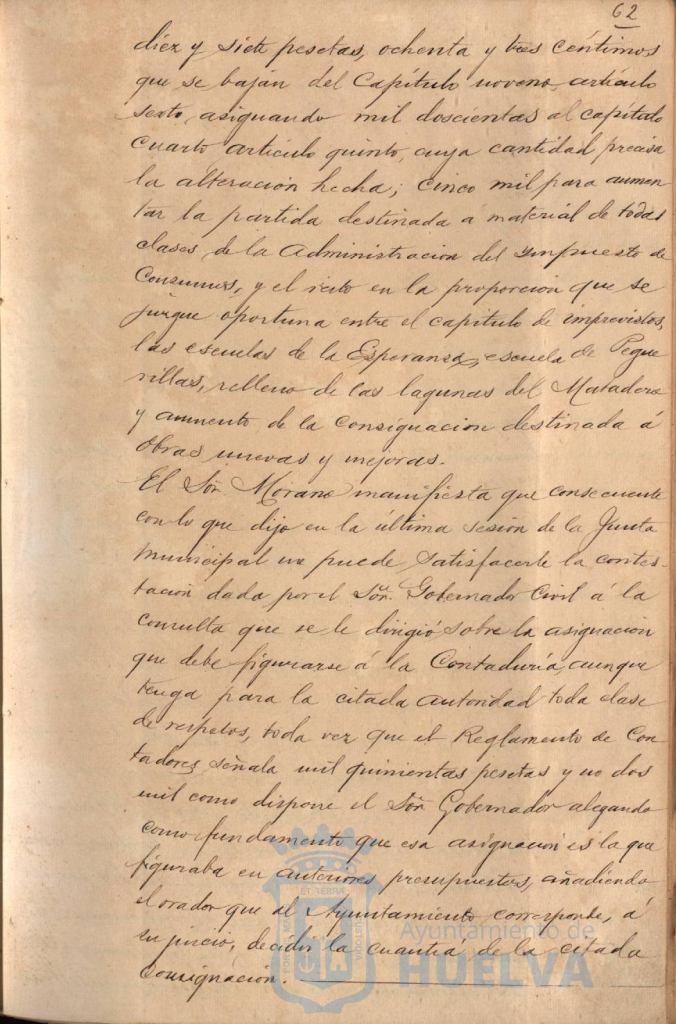 62
diez y siete pesetas, ochenta y tres céntimos
que se bajan del Capítulo noveno, artículo
sexto, asignando mil doscientas al capítulo
cuarto artículo quinto, cuya cantidad precisa
la alteración hecha; cinco mil para aumen-
tar la partida destinada á material de todas
clases, de la Administración del Impuesto de
Consumos, y el resto en la proporción que se
juzgue oportuna entre el capítulo de imprevistos,
las escuelas de la Esperanza, escuela de Pegue
rillas, relleno de las lagunas del Matadero
y aumento de la consignación destinada á
obras nuevas y mejoras.
El Sōr Morano manifiesta que consecuente
con lo que dijo en la última sesión de la Junta
Municipal no puede satisfacerle la contes-
tación dada por el Sōr. Gobernador Civil á la
consulta que se le dirigió sobre la asignación
que debe figurarse á la Contaduría, aunque
tenga para la citada autoridad toda clase
de respetos, toda vez que el Reglamento de Con
tadores señala mil quinientas pesetas y no dos
mil como dispone el Sōr Gobernador alegando
como fundamento que esa asignación es la que
figuraba en anteriores presupuestos, añadiendo
el orador que al Ayuntamiento corresponde, á
su juicio, decidir la cuantía de la citada
consignación.
Ayuntamiento de
HUELVA